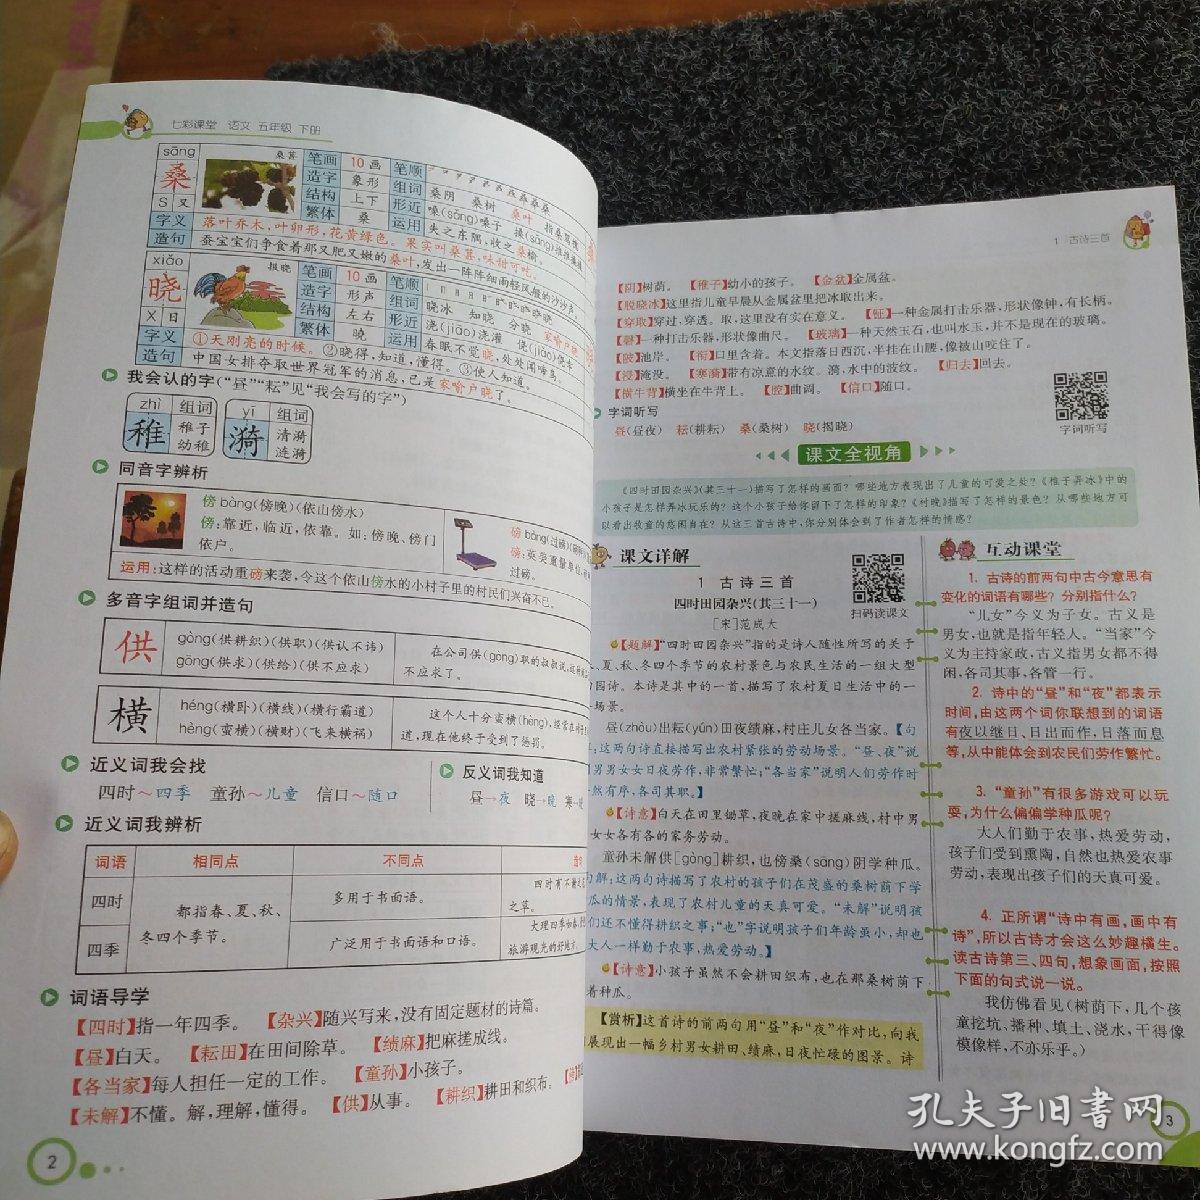 七彩课堂 语文 五年级 下册
sāng
桑
S 又
桑葚
笔画 10画 笔顺
造字 象形 组词 桑阴 桑树 桑叶 指桑骂槐
结构 上下 形近 嗓(sǎng)嗓子 搡(sǎng)推推搡搡
繁体 桑 运用 失之东隅,收之桑榆。
字义 落叶乔木,叶卵形,花黄绿色。果实叫桑葚,味甜可吃。
造句 蚕宝宝们争食着那又肥又嫩的桑叶,发出一阵阵细雨轻风般的沙沙声。
xiǎo
晓
X 日
报晓
笔画 10画 笔顺
造字 形声 组词 晓冰 知晓 分晓 家喻户晓
结构 左右 形近 浇(jiāo)浇灌
繁体 晓 运用 春眠不觉晓,处处闻啼鸟。
字义 ①天刚亮的时候。②晓得,知道,懂得。③使人知道。
造句 中国女排夺取世界冠军的消息,已是家喻户晓了。
我会认的字(“昼”“耘”见“我会写的字”)
zhì 组词
稚 稚子 幼稚
yī 组词
漪 清漪 涟漪
同音字辨析
傍 bàng(傍晚)(依山傍水)
傍:靠近,临近,依靠。如:傍晚、傍门
依户。
磅 bàng(过磅)
磅:英美重量单位
过磅。
运用:这样的活动重磅来袭,令这个依山傍水的小村子里的村民们兴奋不已。
多音字组词并造句
供
gòng(供耕织)(供职)(供认不讳)
gōng(供求)(供给)(供不应求)
在公司供(gòng)职的叔叔说,这种
不应求了。
横
héng(横卧)(横线)(横行霸道)
hèng(蛮横)(横财)(飞来横祸)
这个人十分蛮横(hèng),经常在
道,现在他终于受到了惩罚。
近义词我会找
四时～四季 童孙～儿童 信口～随口
反义词我知道
昼→夜 晓→晚 寒→
近义词我辨析
词语 相同点 不同点
四时 都指春、夏、秋、冬四个季节。 多用于书面语。 四时有不
之草。
四季 广泛用于书面语和口语。 大理四季如春
旅游观光的好地方。
词语导学
【四时】指一年四季。 【杂兴】随兴写来,没有固定题材的诗篇。
【昼】白天。 【耘田】在田间除草。 【绩麻】把麻搓成线。
【各当家】每人担任一定的工作。 【童孙】小孩子。
【未解】不懂。解,理解,懂得。 【供】从事。 【耕织】耕田和织布。
2
1 古诗三首
【阴】树荫。 【稚子】幼小的孩子。 【金盆】金属盆。
【脱晓冰】这里指儿童早晨从金属盆里把冰取出来。
【穿取】穿过,穿透。取,这里没有实在意义。 【钲】一种金属打击乐器,形状像钟,有长柄。
【磬】一种打击乐器,形状像曲尺。 【玻璃】一种天然玉石,也叫水玉,并不是现在的玻璃。
【陂】池岸。 【衔】口里含着。本文指落日西沉,半挂在山腰,像被山咬住了。
【浸】淹没。 【寒漪】带有凉意的水纹。漪,水中的波纹。 【归去】回去。
【横牛背】横坐在牛背上。 【腔】曲调。 【信口】随口。
字词听写
昼(昼夜) 耘(耕耘) 桑(桑树) 晓(揭晓)
字词听写
课文全视角
《四时田园杂兴》(其三十一)描写了怎样的画面?哪些地方表现出了儿童的可爱之处?《稚子弄冰》中的
小孩子是怎样弄冰玩乐的?这个小孩子给你留下了怎样的印象?《村晚》描写了怎样的景色?从哪些地方可
以看出牧童的悠闲自在?从这三首古诗中,你分别体会到了作者怎样的情感?
课文详解
1 古诗三首
四时田园杂兴(其三十一)
[宋]范成大
扫码读课文
【题解】“四时田园杂兴”指的是诗人随性所写的关于
、夏、秋、冬四个季节的农村景色与农民生活的一组大型
园诗。本诗是其中的一首,描写了农村夏日生活中的一
场景。
昼(zhòu)出耘(yún)田夜绩麻,村庄儿女各当家。【句
:这两句诗直接描写出农村紧张的劳动场景。“昼、夜”说
男男女女日夜劳作,非常繁忙;“各当家”说明人们劳作时
然有序,各司其职。】
【诗意】白天在田里锄草,夜晚在家中搓麻线,村中男
女女各有各的家务劳动。
童孙未解供[gòng]耕织,也傍桑(sāng)阴学种瓜。
句解:这两句诗描写了农村的孩子们在茂盛的桑树荫下学
瓜的情景,表现了农村儿童的天真可爱。“未解”说明孩
们还不懂得耕织之事;“也”字说明孩子们年龄虽小,却也
大人一样勤于农事,热爱劳动。】
【诗意】小孩子虽然不会耕田织布,也在那桑树荫下
着种瓜。
【赏析】这首诗的前两句用“昼”和“夜”作对比,向我
展现出一幅乡村男女耕田、绩麻,日夜忙碌的图景。诗
互动课堂
1. 古诗的前两句中古今意思有
变化的词语有哪些?分别指什么?
“儿女”今义为子女。古义是
男女,也就是指年轻人。“当家”今
义为主持家政,古义指男女都不得
闲,各司其事,各管一行。
2. 诗中的“昼”和“夜”都表示
时间,由这两个词你联想到的词语
有夜以继日、日出而作,日落而息
等,从中能体会到农民们劳作繁忙。
3. “童孙”有很多游戏可以玩
耍,为什么偏偏学种瓜呢?
大人们勤于农事,热爱劳动,
孩子们受到熏陶,自然也热爱农事
劳动,表现出孩子们的天真可爱。
4. 正所谓“诗中有画,画中有
诗”,所以古诗才会这么妙趣横生。
读古诗第三、四句,想象画面,按照
下面的句式说一说。
我仿佛看见(树荫下,几个孩
童挖坑、播种、填土、浇水,干得像
模像样,不亦乐乎。)
3
孔夫子旧书网
www.kongfz.com